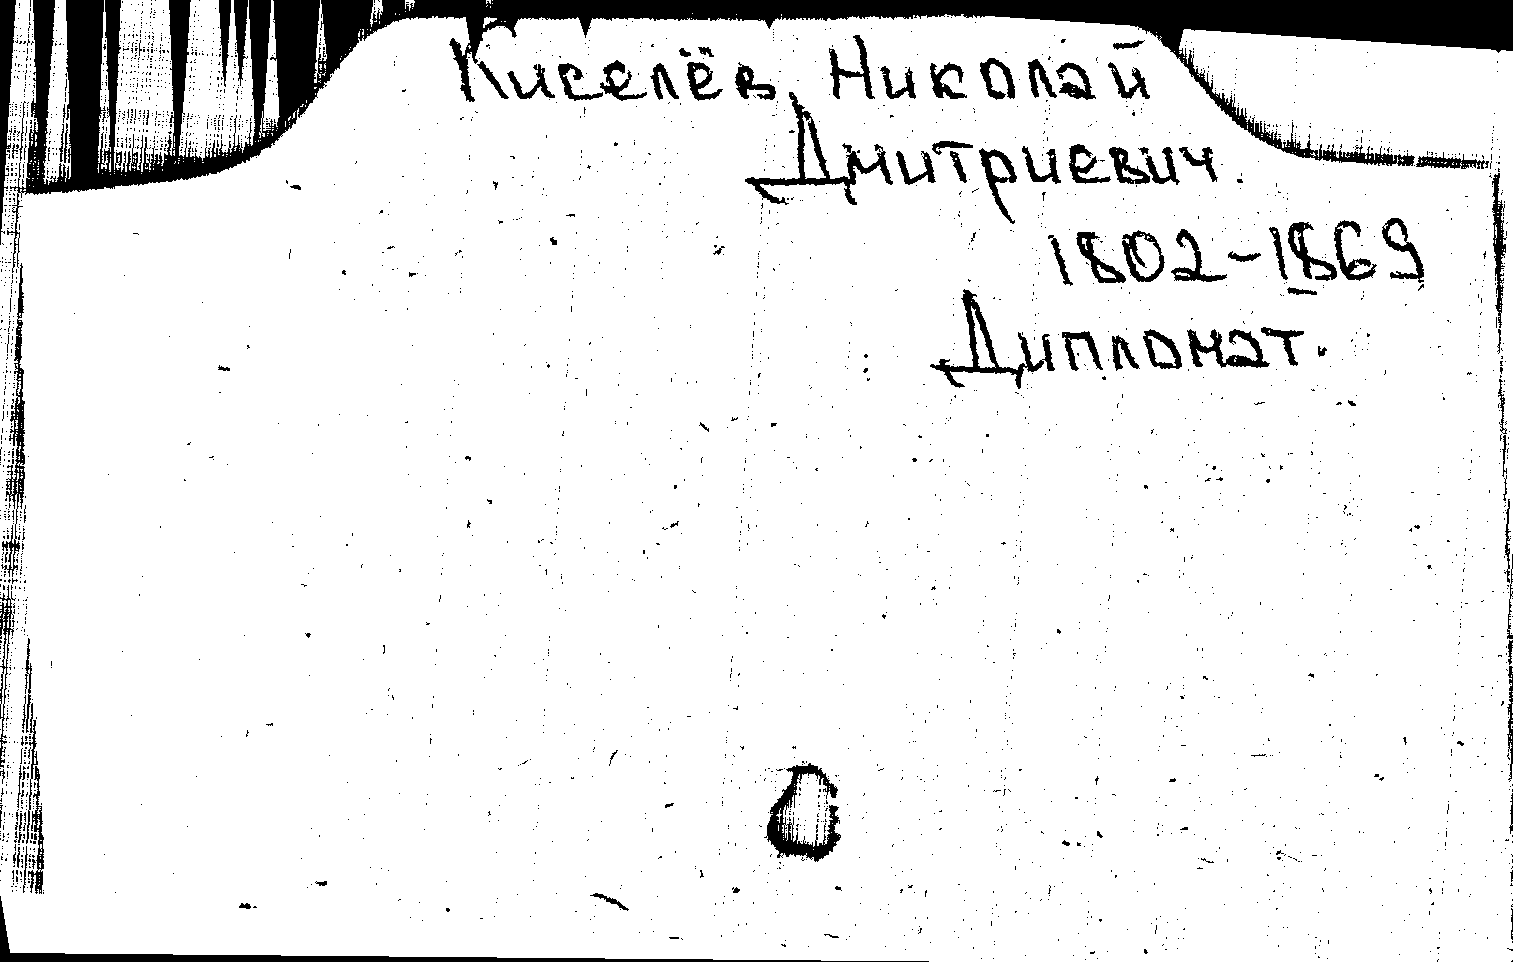 Киселёв, Николай
Дмитриевич.
1802-1869
Дипломат.